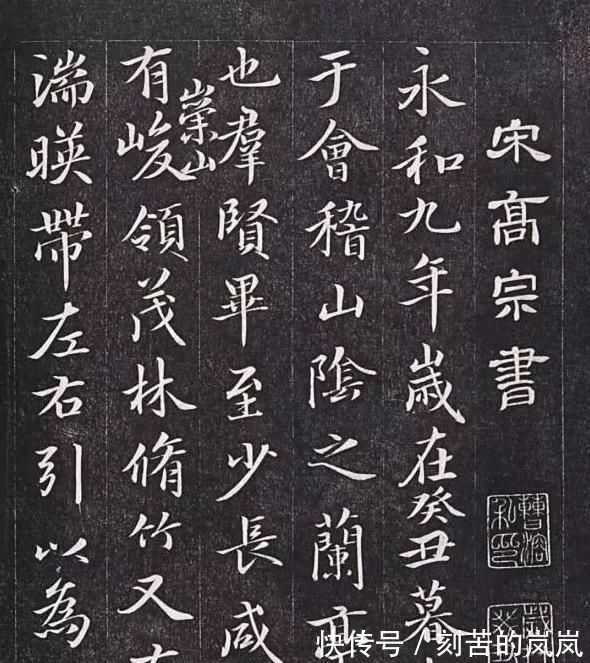 宋髙宗書
曹溶私印
永和九年歲在癸丑暮
于會稽山陰之蘭亭
也羣賢畢至少長咸
有崇山峻領茂林脩竹又有
湍暎帶左右引以為
快传号 / 刻苦的岚岚